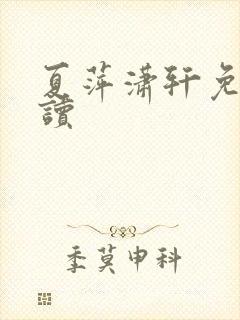 夏萍潇轩免
讀
季莫申科